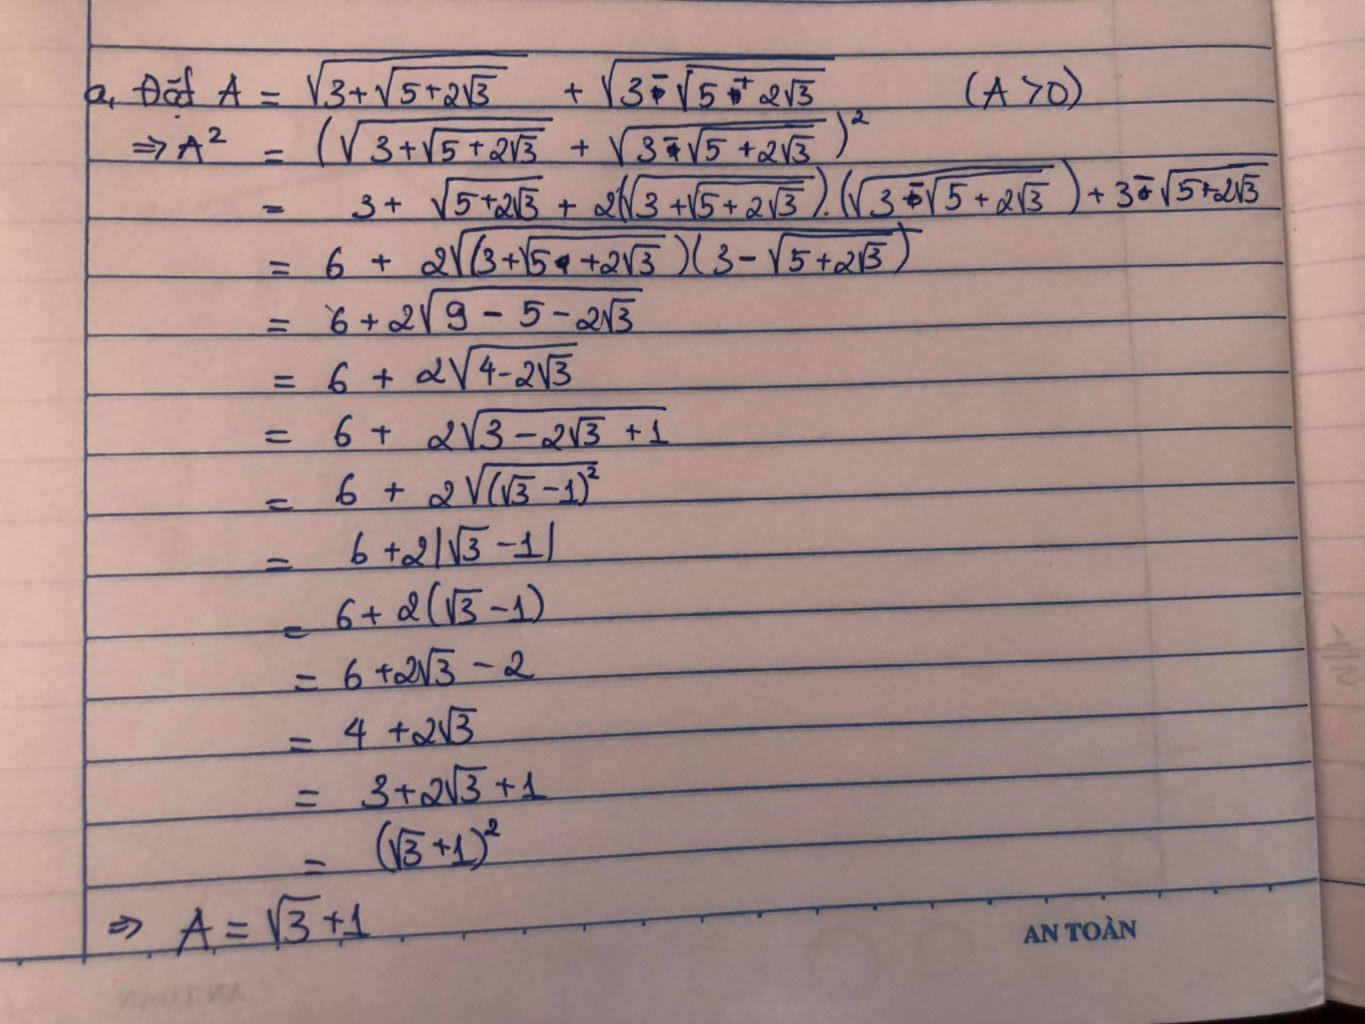 a, Đặt A = √(3+√(5+2√3)) + √(3-√(5+2√3)) (A >0)
⇒ A² = (√(3+√(5+2√3)) + √(3-√(5+2√3)))²
= 3+ √(5+2√3) + 2(√(3+√(5+2√3))).(√(3-√(5+2√3))) + 3-√(5+2√3)
= 6 + 2√((3+√(5+2√3))(3-√(5+2√3)))
= 6+2√(9-5-2√3)
= 6 + 2√(4-2√3)
= 6 + 2√(3-2√3+1)
= 6 + 2√((√3-1)²)
= 6 +2|√3-1|
= 6+ 2(√3-1)
= 6 +2√3 - 2
= 4 +2√3
= 3+2√3+1
= (√3+1)²
⇒ A = √3+1
AN TOÀN